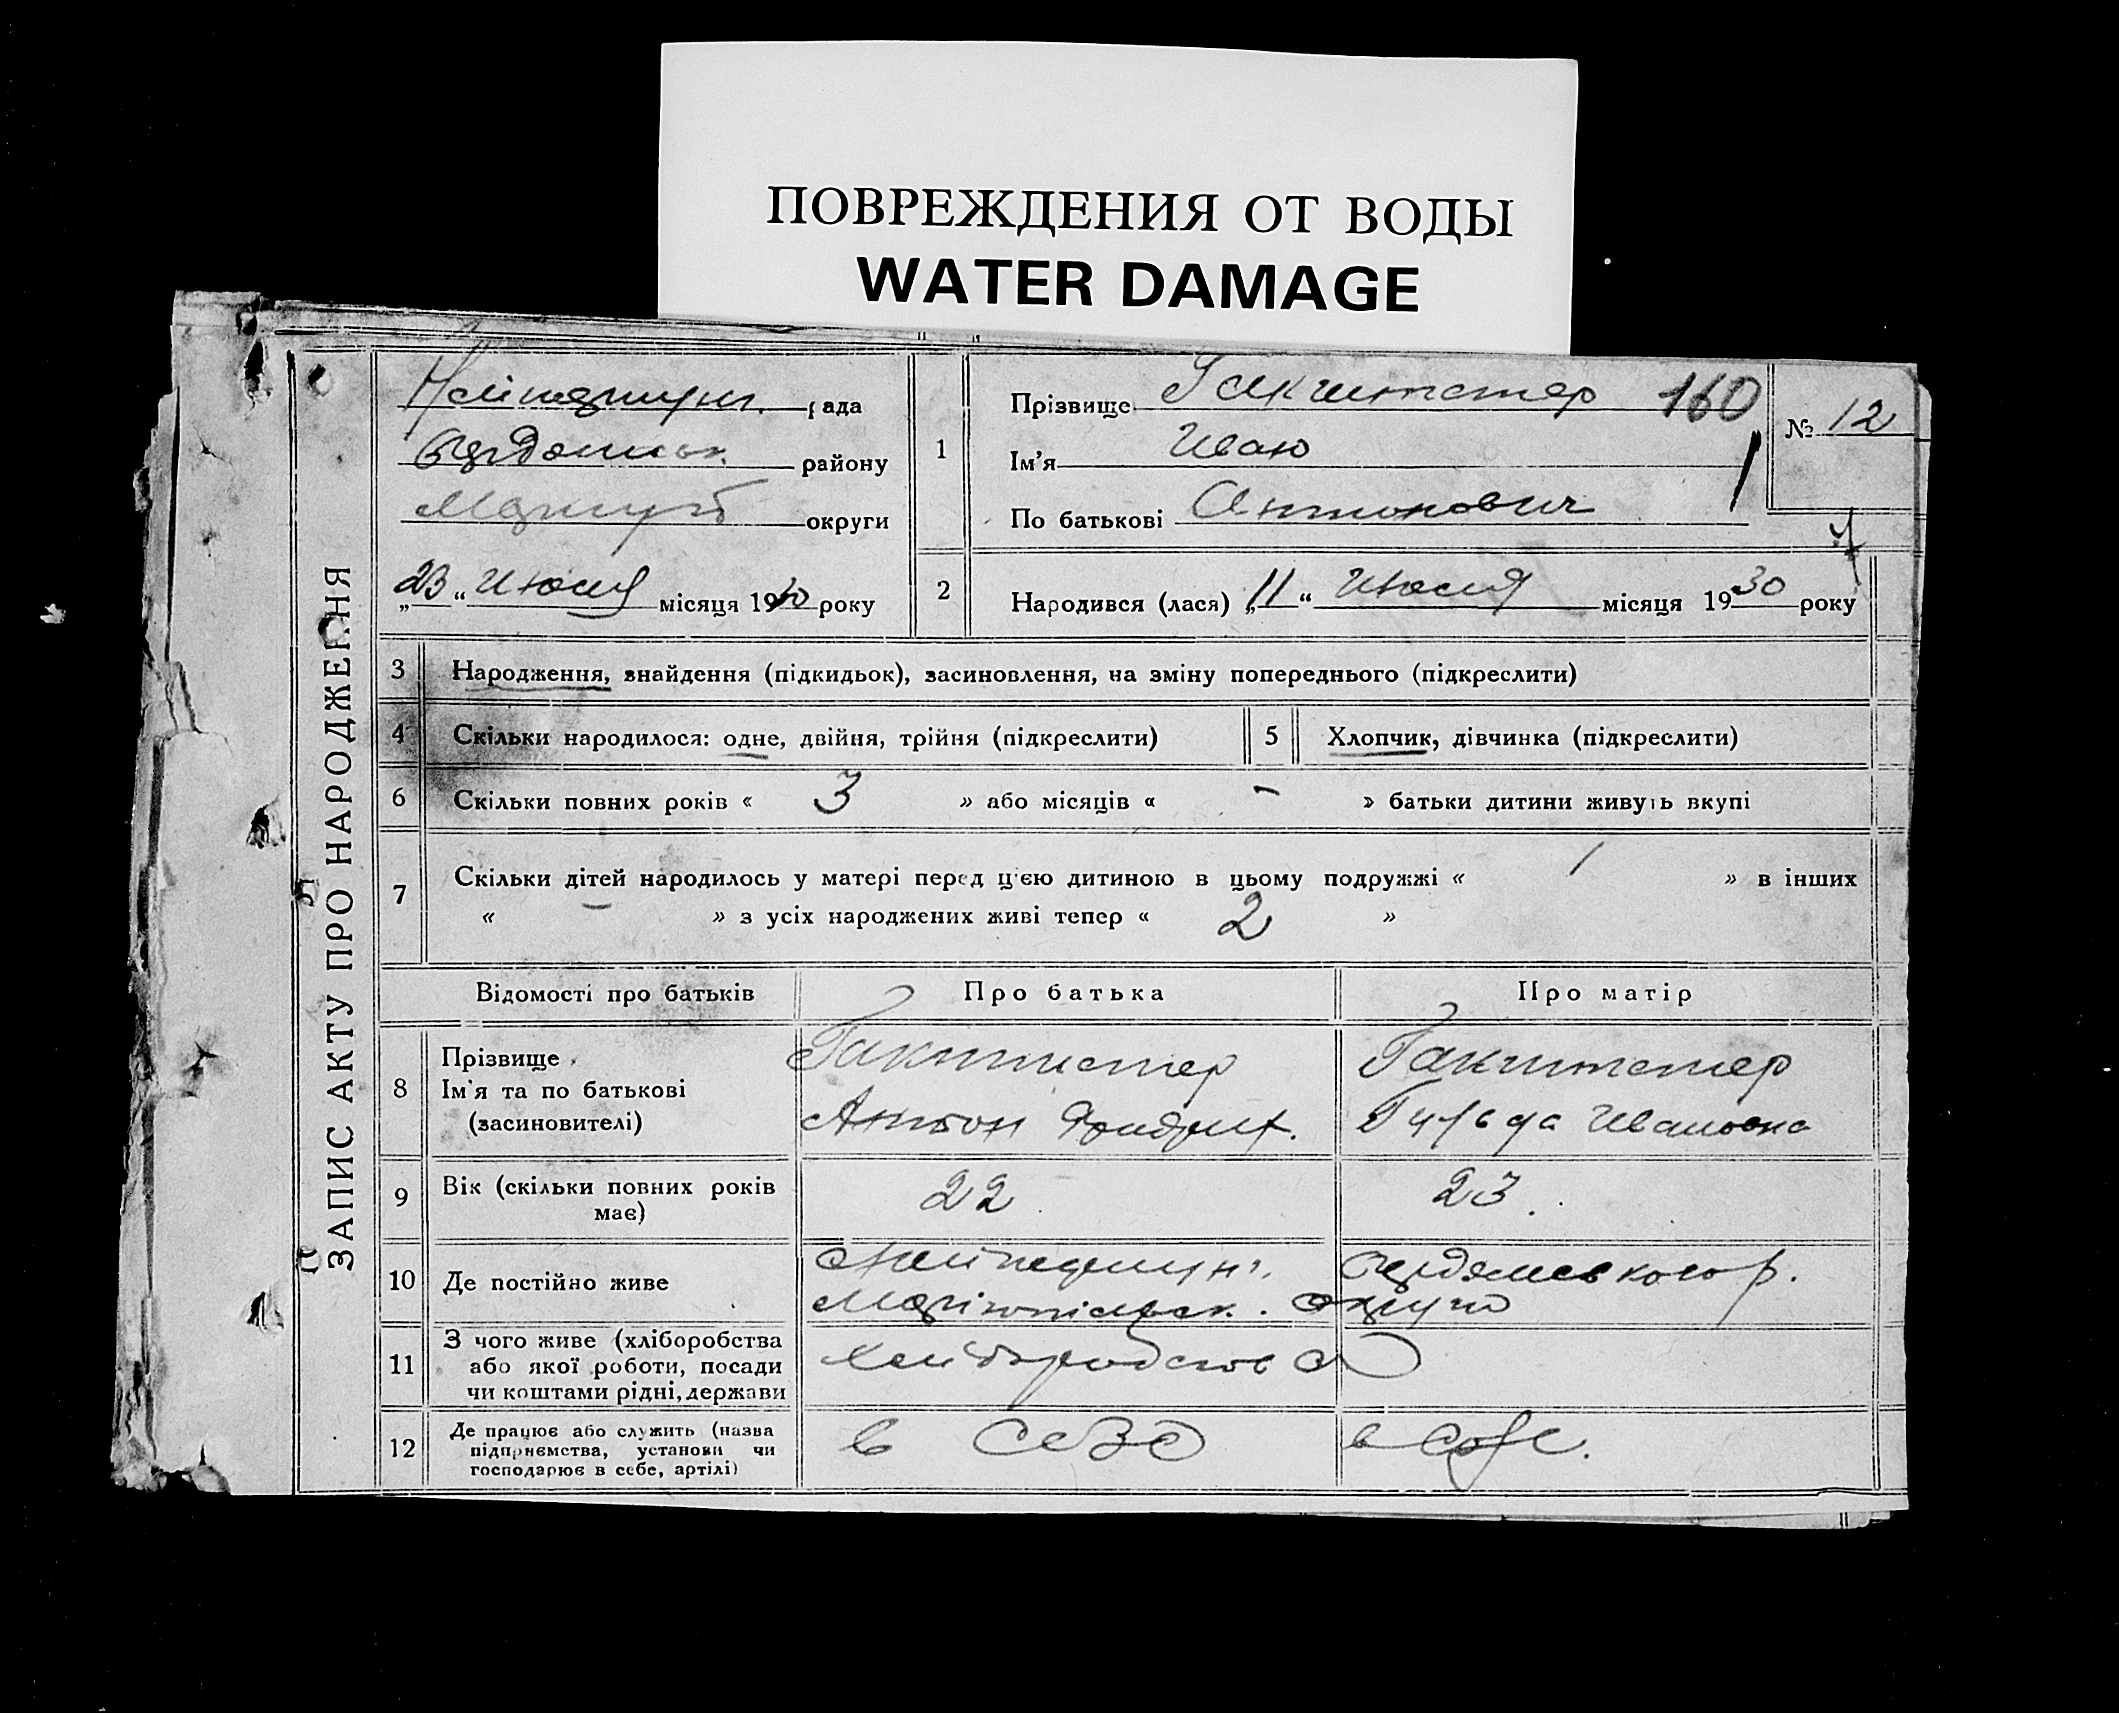 ПОВРЕЖДЕНИЯ ОТ ВОДЫ
WATER DAMAGE
ЗАПИС АКТУ ПРО НАРОДЖЕННЯ
рада
району
округи
„23“ Июля місяця 1930 року
1
Прізвище Гакштетер 160
Ім'я Иван
По батькові Антонович
№ 12
2
Народився (лася) „11“ Июля місяця 1930 року
3 Народження, знайдення (підкидьок), засиновлення, на зміну попереднього (підкреслити)
4 Скільки народилося: одне, двійня, трійня (підкреслити)
5 Хлопчик, дівчинка (підкреслити)
6 Скільки повних років « 3 » або місяців « - » батьки дитини живуть вкупі
7 Скільки дітей народилось у матері перед цією дитиною в цьому подружжі « 1 » в інших
« - » з усіх народжених живі тепер « 2 »
Відомості про батьків Про батька Про матір
8 Прізвище
Ім'я та по батькові
(засиновителі)
Гакштетер
Антон
Гакштетер
Гильда Ивановна
9 Вік (скільки повних років
має)
22
23.
10 Де постійно живе
11 З чого живе (хліборобства
або якої роботи, посади
чи коштами рідні, держави
12 Де працює або служить (назва
підприємства, установи чи
господарює в себе, артілі)
в
в